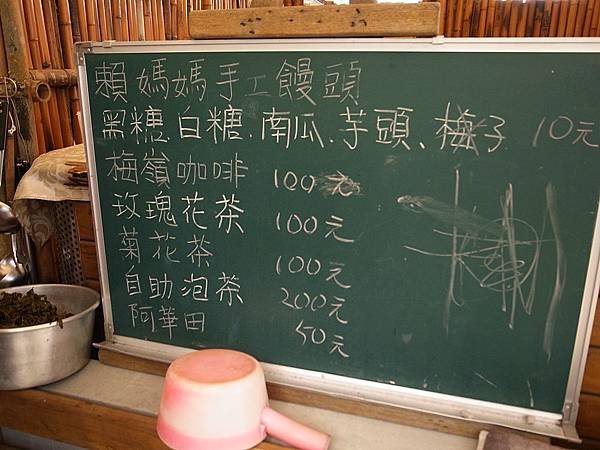 賴媽媽手工饅頭
黑糖.白糖.南瓜.芋頭、梅子 10元
梅嶺咖啡 100元
玫瑰花茶 100元
菊花茶 100元
自助泡茶 200元
阿華田 50元